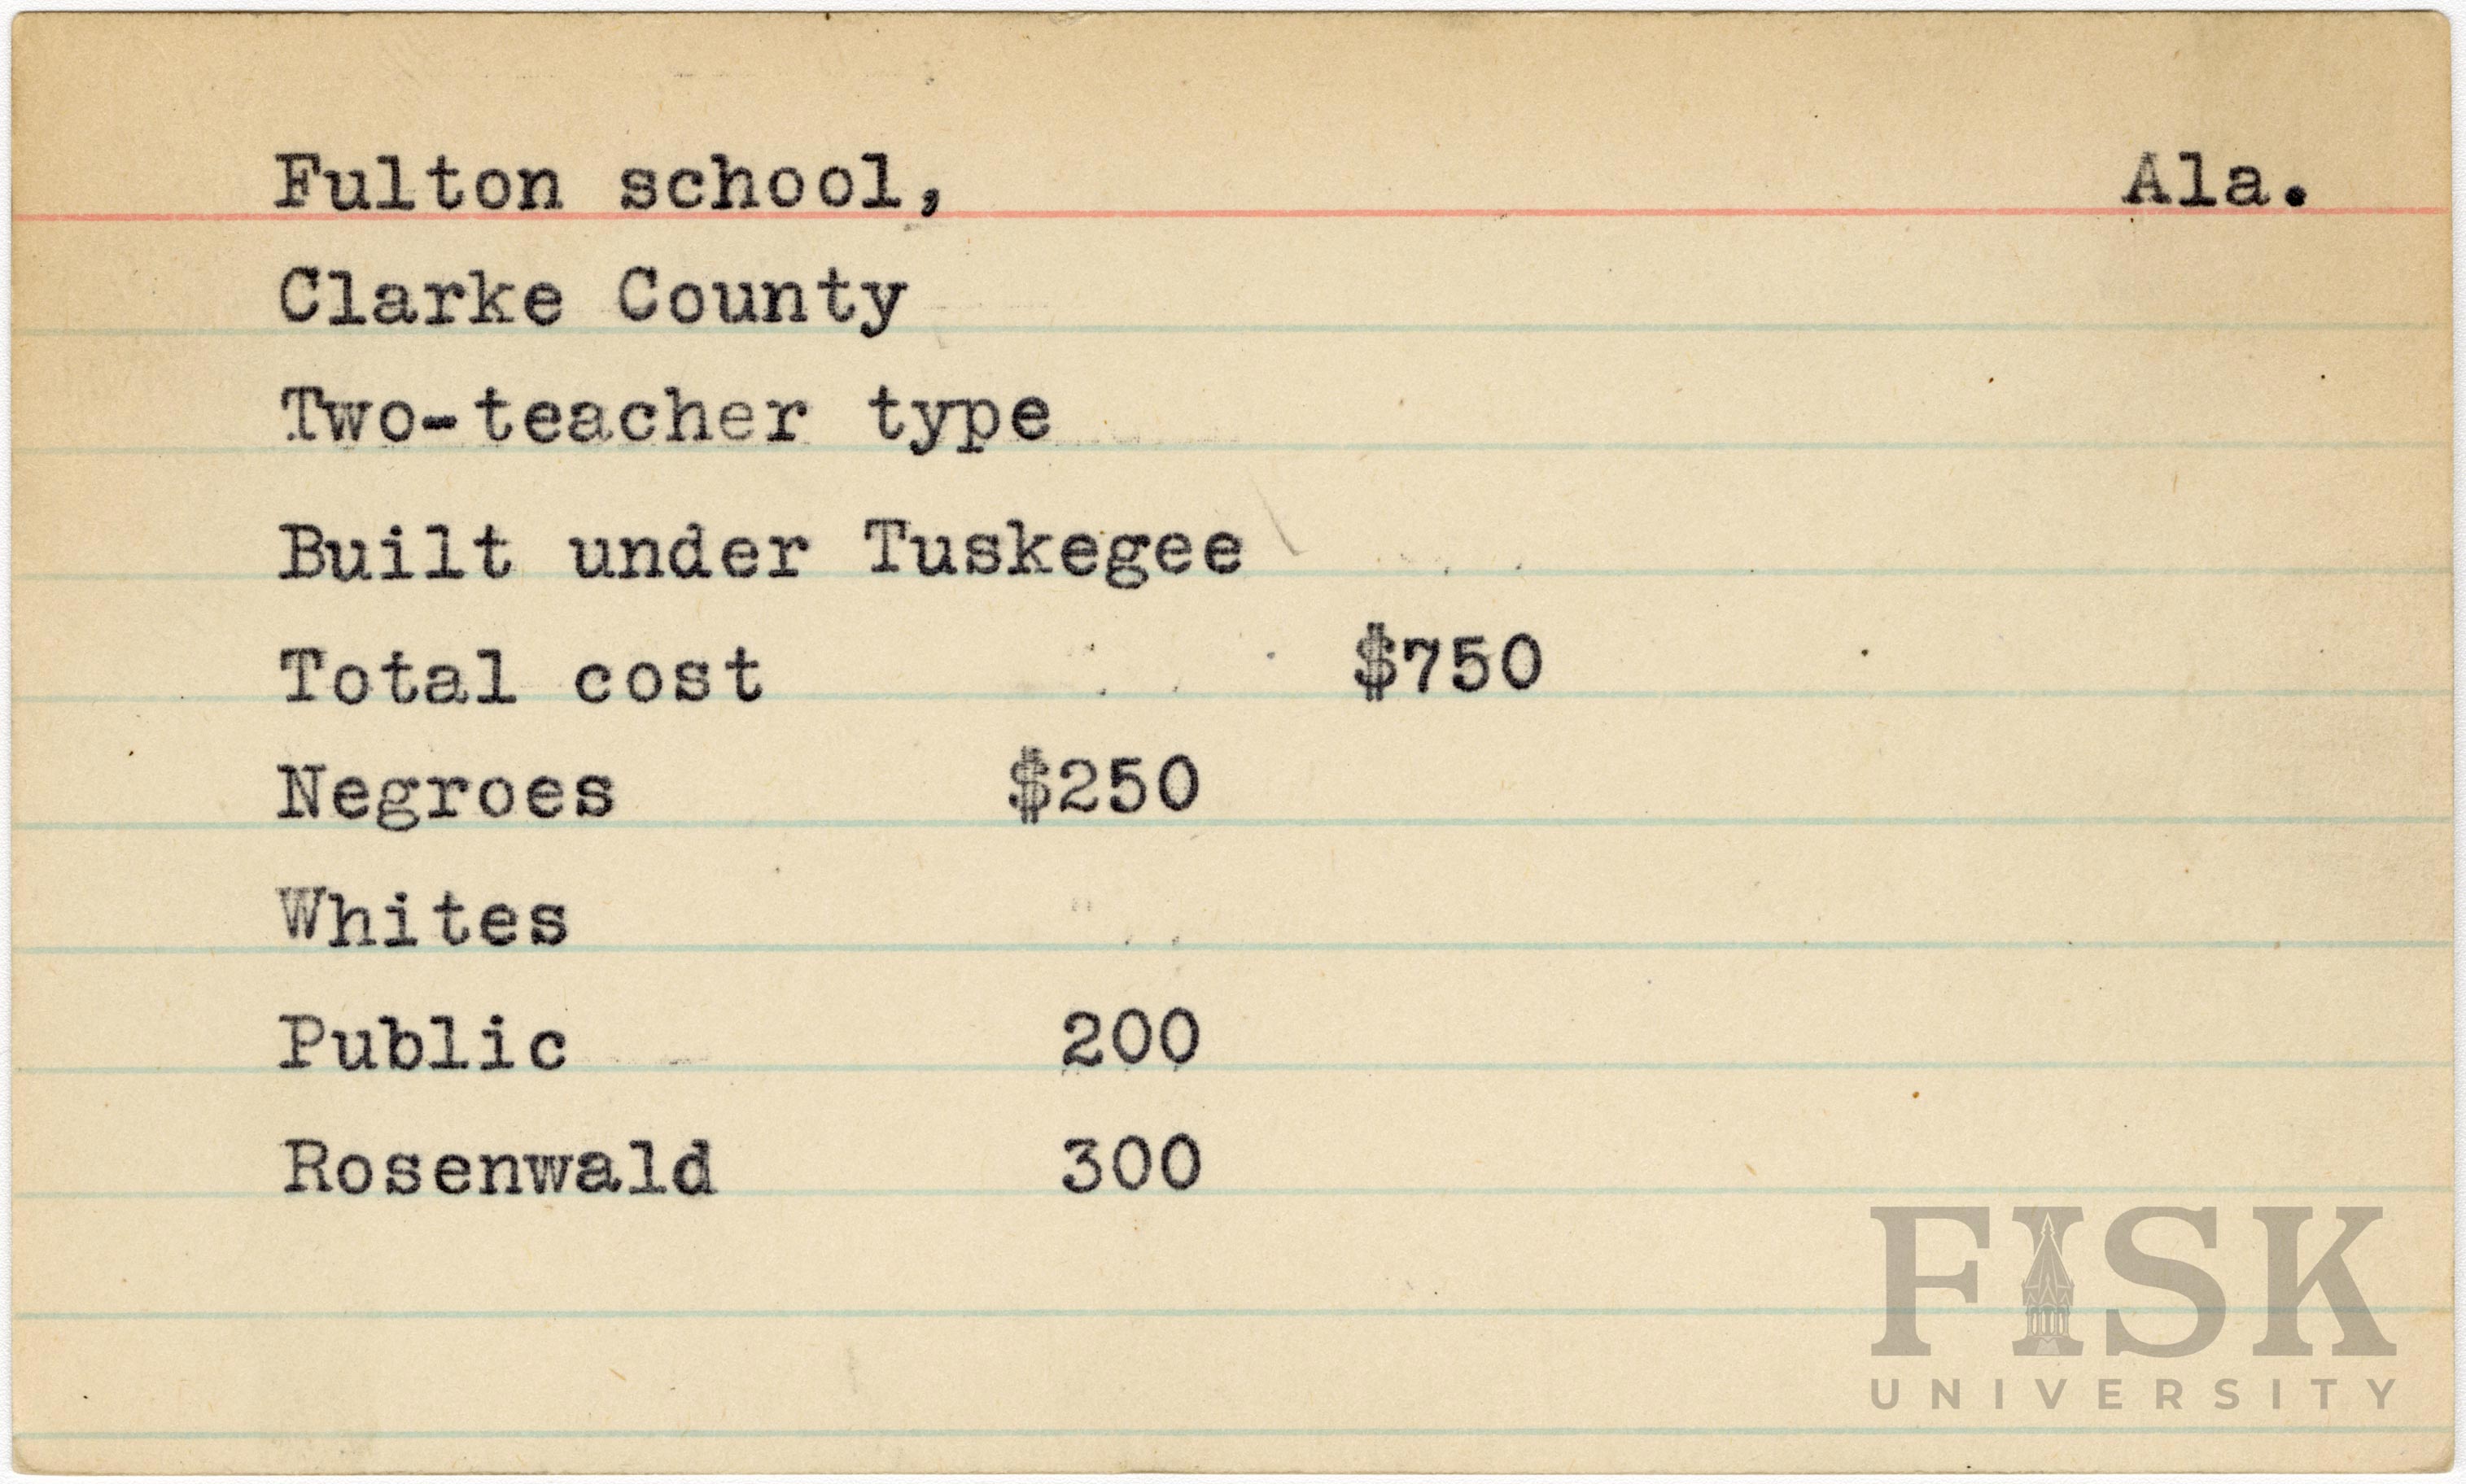 Fulton school, Ala.
Clarke County
Two-teacher type
Built under Tuskegee
Total cost $750
Negroes $250
Whites
Public 200
Rosenwald 300
FISK
UNIVERSITY